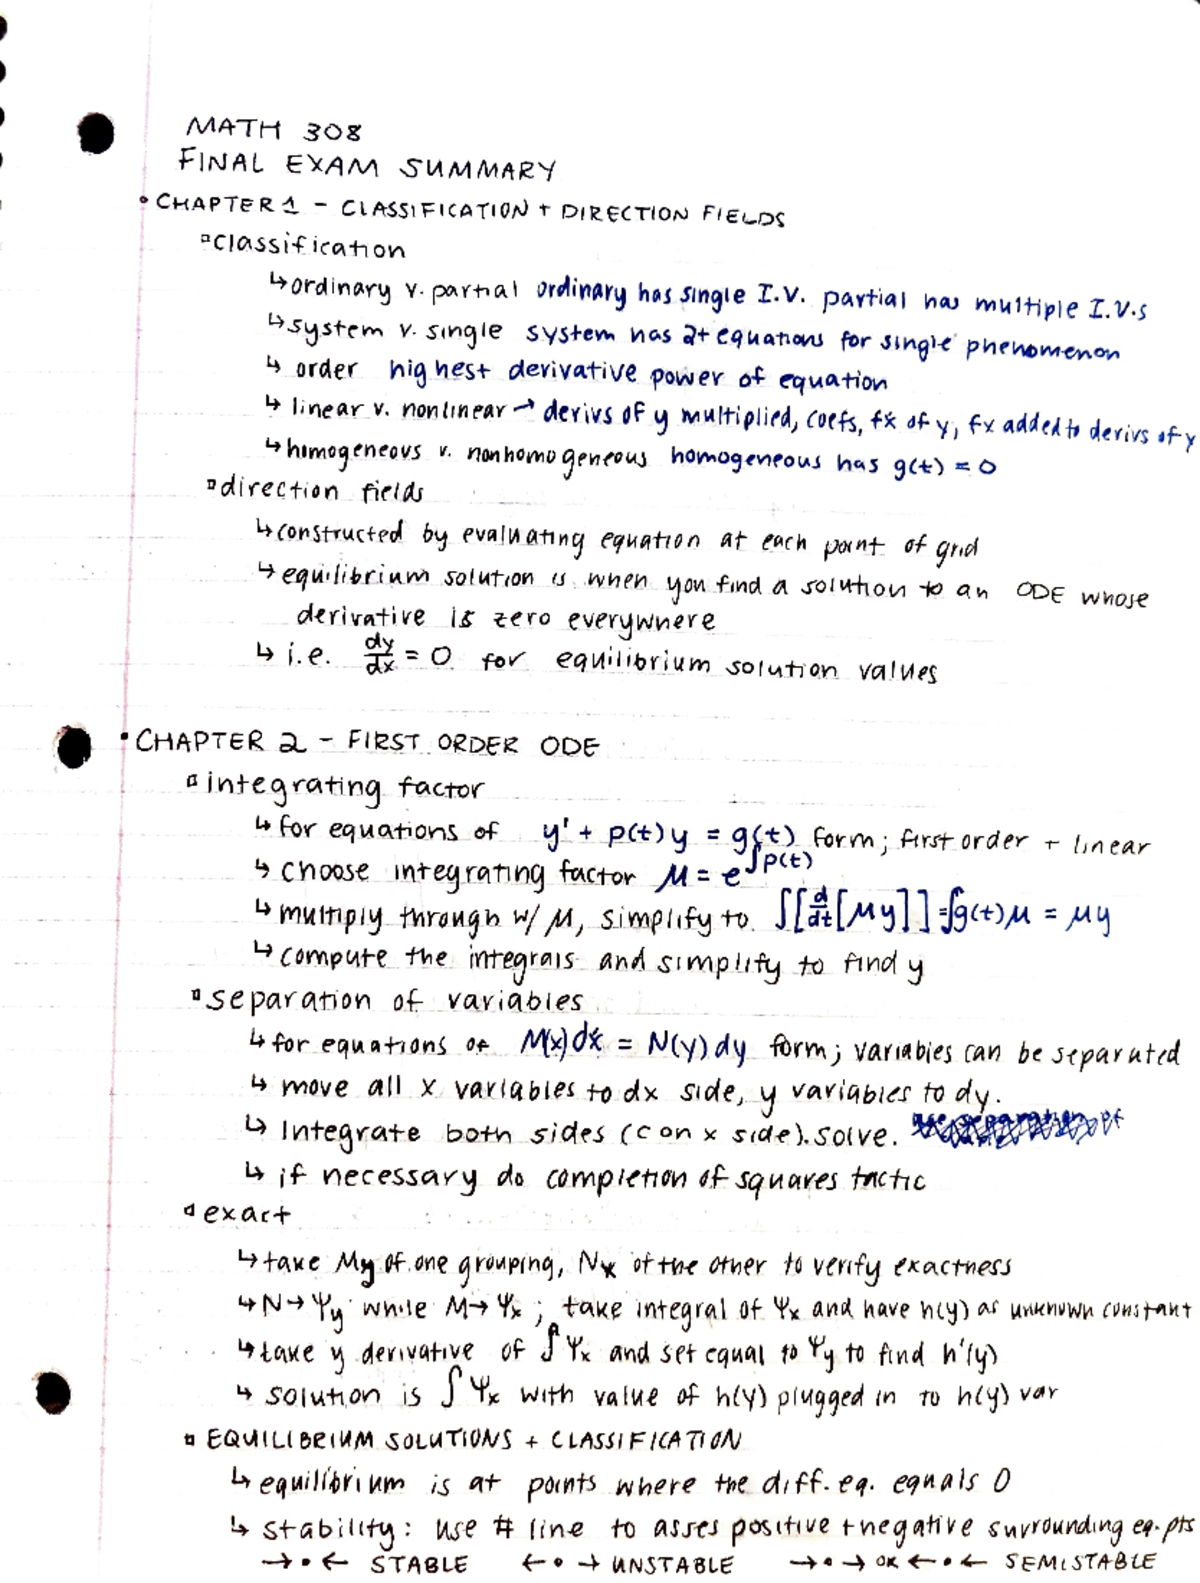 MATH 308
FINAL EXAM SUMMARY
• CHAPTER 1 - CLASSIFICATION + DIRECTION FIELDS
▫ classification
↳ ordinary v. partial ordinary has single I.V. partial has multiple I.V.s
↳ system v. single system has 2+ equations for single phenomenon
↳ order highest derivative power of equation
↳ linear v. nonlinear → derivs of y multiplied, coefs, fx of y, fx added to derivs of y
↳ homogeneous v. nonhomogeneous homogeneous has g(t) = 0
▫ direction fields
↳ constructed by evaluating equation at each point of grid
↳ equilibrium solution is when you find a solution to an ODE whose
derivative is zero everywhere
↳ i.e. dy/dx = 0 for equilibrium solution values
• CHAPTER 2 - FIRST ORDER ODE
▫ integrating factor
↳ for equations of y' + p(t)y = g(t) form; first order + linear
↳ choose integrating factor μ = e^∫p(t)
↳ multiply through w/ μ, simplify to ∫[d/dt[μy]] = ∫g(t)μ = μy
↳ compute the integrals and simplify to find y
▫ separation of variables
↳ for equations of M(x)dx = N(y)dy form; variables can be separated
↳ move all x variables to dx side, y variables to dy.
↳ Integrate both sides (c on x side). solve.
↳ if necessary do completion of squares tactic
▫ exact
↳ take My of one grouping, Nx of the other to verify exactness
↳ N → Ψy while M → Ψx ; take integral of Ψx and have h(y) as unknown constant
↳ take y derivative of ∫Ψx and set equal to Ψy to find h'(y)
↳ solution is ∫Ψx with value of h(y) plugged in to h(y) var
▫ EQUILIBRIUM SOLUTIONS + CLASSIFICATION
↳ equilibrium is at points where the diff. eq. equals 0
↳ stability: use # line to asses positive + negative surrounding eq. pts
→ • ← STABLE ← • → UNSTABLE → • → OR ← • ← SEMISTABLE